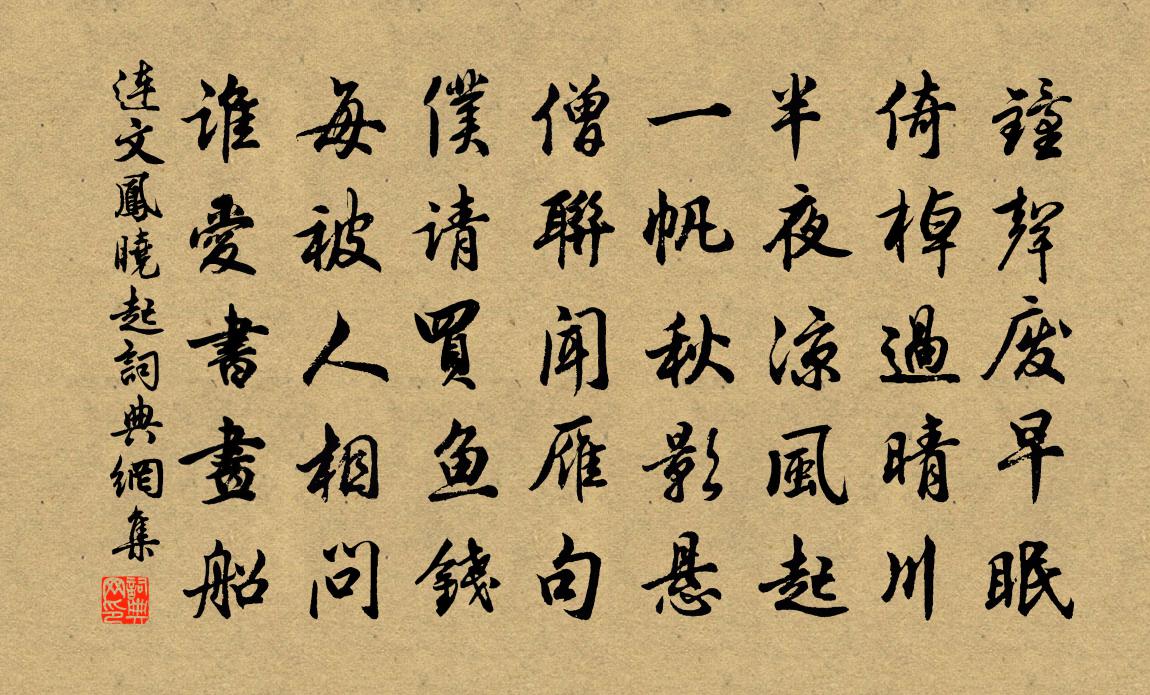 鐘聲廢早眠
倚棹過晴川
半夜涼風起
一帆秋影悬
僧聯闻雁句
僕请買鱼錢
每被人相問
谁愛書畫船
连文鳳曉起詞典網集
詞典网印